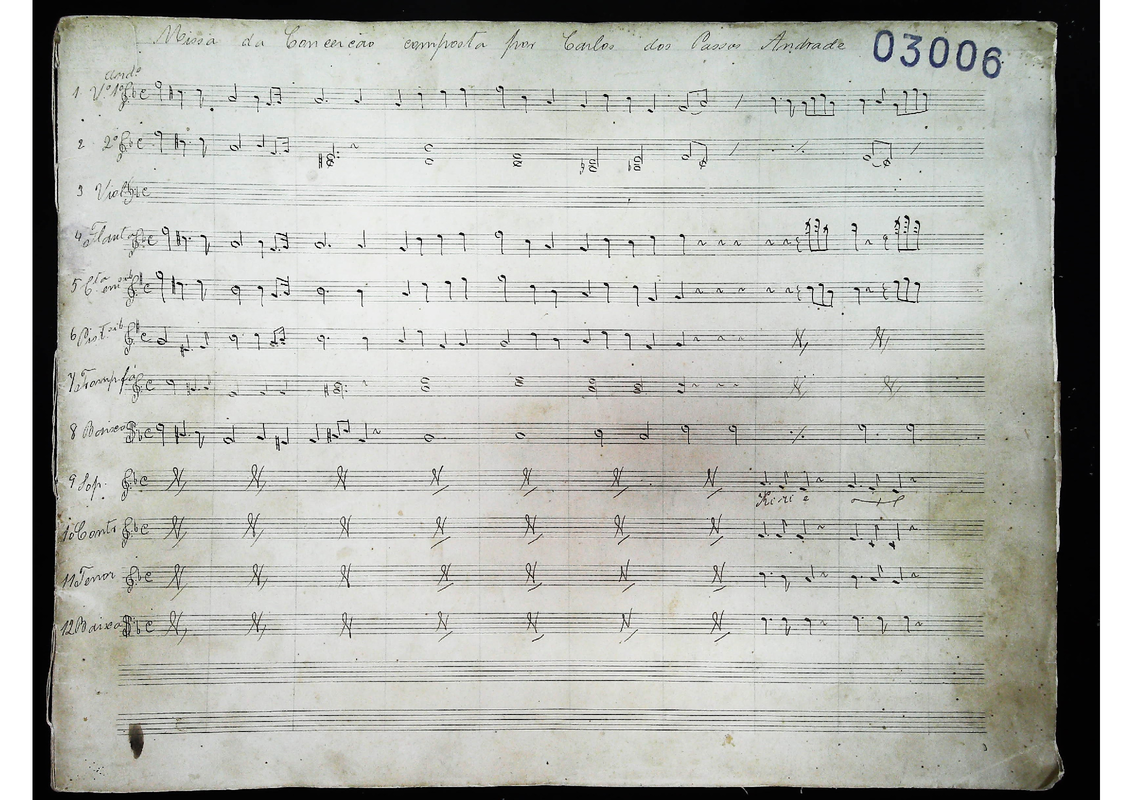 Missa da Conceicão composta por Carlos dos Passos Andrade
03006
Andte
1 Vº 1º
2 2º
3 Viol
4 Flauta
5 Cta em sib
6 Pist. sib
7 Tromp fá
8 Baixo
9 Sop.
Kiri e
10 Conto
11 Tenor
12 Baixo